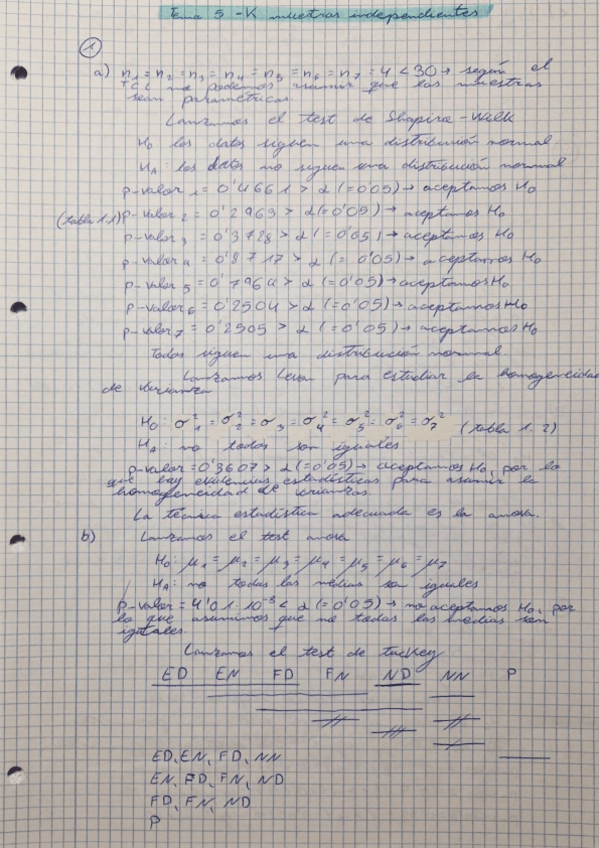 Tema 5 - K muestras independientes
1
a) n1 = n2 = n3 = n4 = n5 = n6 = n7 = 4 < 30 → según el
TCL no podemos asumir que las muestras
sean paramétricas.
Lanzamos el test de Shapiro - Wilk
H0 los datos siguen una distribución normal
HA: los datos no siguen una distribución normal
p-valor 1 = 0'4661 > α (= 0'05) → aceptamos H0
(tabla 1.1) p-valor 2 = 0'2963 > α (= 0'05) → aceptamos H0
p-valor 3 = 0'3728 > α (= 0'05) → aceptamos H0
p-valor 4 = 0'8717 > α (= 0'05) → aceptamos H0
p-valor 5 = 0'7964 > α (= 0'05) → aceptamos H0
p-valor 6 = 0'2504 > α (= 0'05) → aceptamos H0
p-valor 7 = 0'2505 > α (= 0'05) → aceptamos H0
Todos siguen una distribución normal
Lanzamos para estudiar la homogeneidad
de varianza
H0: σ1² = σ2² = σ3 = σ4² = σ5² = σ6² = σ7² (tabla 1.2)
HA: no todos son iguales
p-valor = 0'3607 > α (= 0'05) → aceptamos H0, por lo
que hay evidencias estadísticas para asumir la
homogeneidad de varianzas.
La técnica estadística adecuada es la anova.
b) Lanzamos el test anova
H0: μ1 = μ2 = μ3 = μ4 = μ5 = μ6 = μ7
HA: no todas las medias son iguales
p-valor = 4'01·10⁻⁸ < α (= 0'05) → no aceptamos H0, por
lo que asumimos que no todas las medias son
iguales.
Lanzamos el test de tuckey
ED EN FD FN ND NN P
ED, EN, FD, NN
EN, FD, FN, ND
FD, FN, ND
P